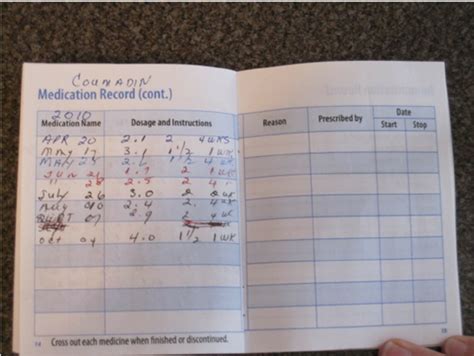 COUMADIN
Medication Record (cont.)
2010
Medication Name Dosage and Instructions Reason Prescribed by Date
Start Stop
APR 20 2.1 2 4 WKS
MAY 17 3.1 1 1/2 1 WK
MAY 25 2.6 1 1/2 4 WK
JUN 21 1.7 2 1 WK
" 28 2.5 2 4
July 26 3.0 2 2 WK
Aug 10 2.4 2 4 WK
SEPT 07 2.9 2 4 WK
Oct 04 4.0 1 1/2 1 WK
14 Cross out each medicine when finished or discontinued.